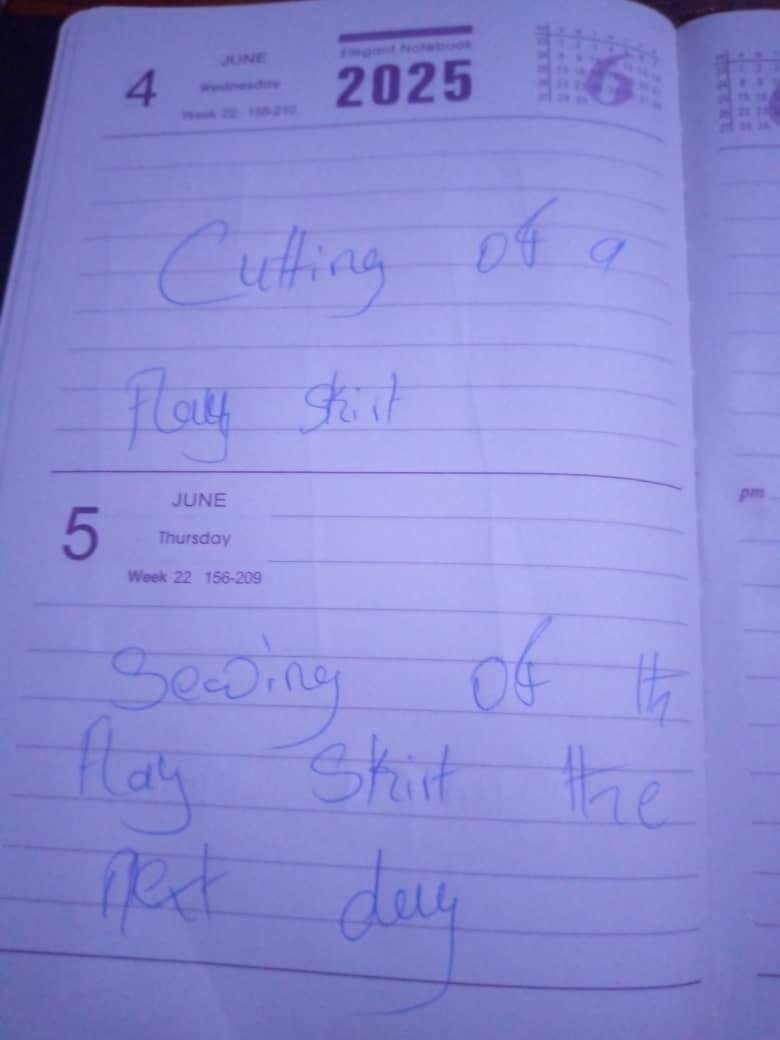 4 JUNE Elegant Notebook 6
Wednesday 2025
Week 22 156-210
Cutting of a
Flay skirt
5 JUNE
Thursday
Week 22 156-209
pm
Sewing of th
flay skirt the
next day